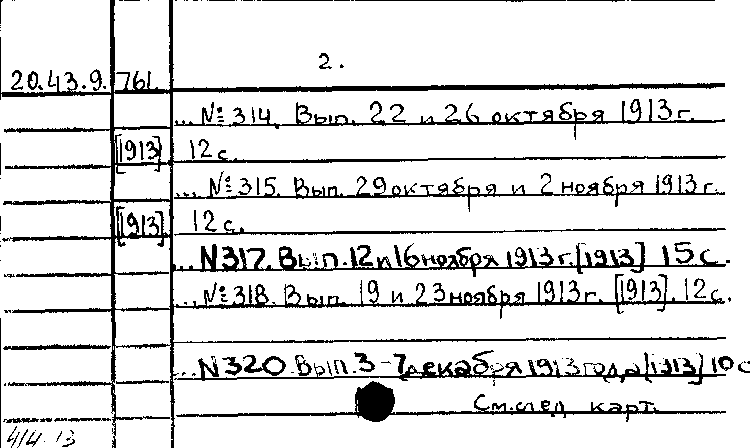 2.
20.43.9. 761.
... № 314. Вып. 22 и 26 октября 1913 г.
[1913] 12 с.
... № 315. Вып. 29 октября и 2 ноября 1913 г.
[1913] 12 с.
... N 317. Вып. 12 и 16 ноября 1913 г. [1913] 15 с.
... № 318. Вып. 19 и 23 ноября 1913 г. [1913]. 12 с.
... N 320. Вып. 3 - 7 декабря 1913 года [1913] 10 с
См. след. карт.